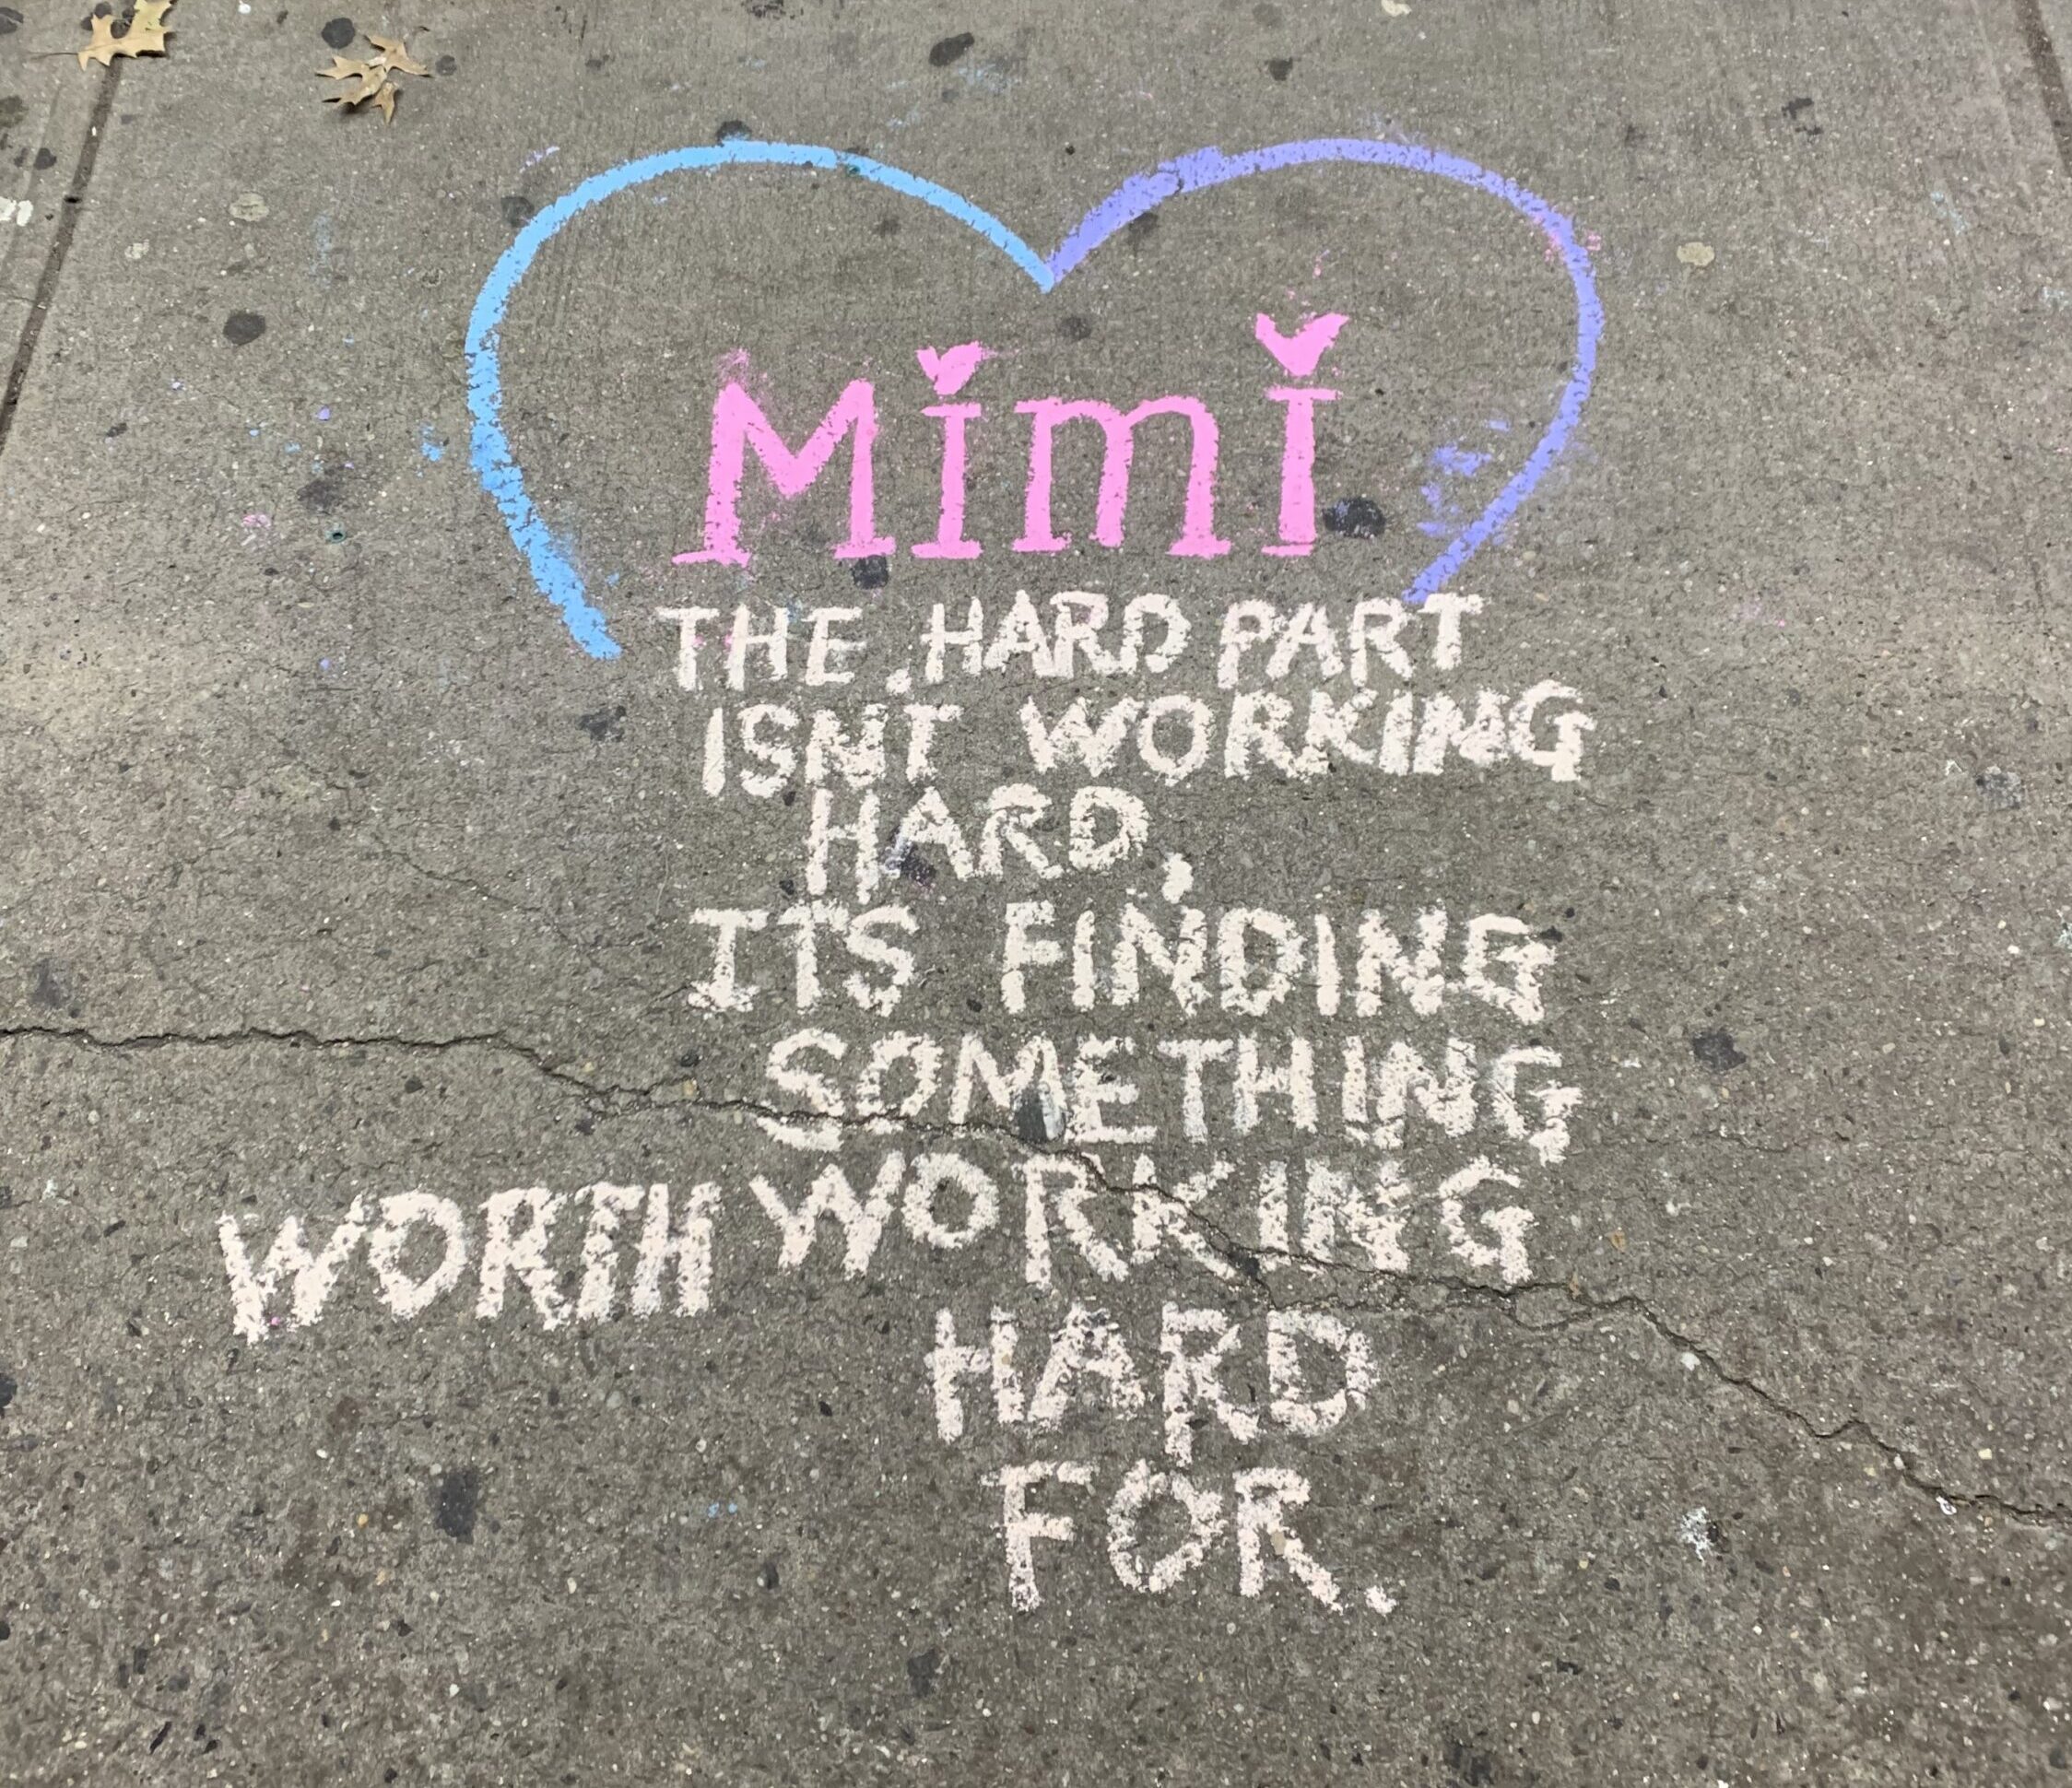 Mimi
THE HARD PART
ISN'T WORKING
HARD,
ITS FINDING
SOMETHING
WORTH WORKING
HARD
FOR.